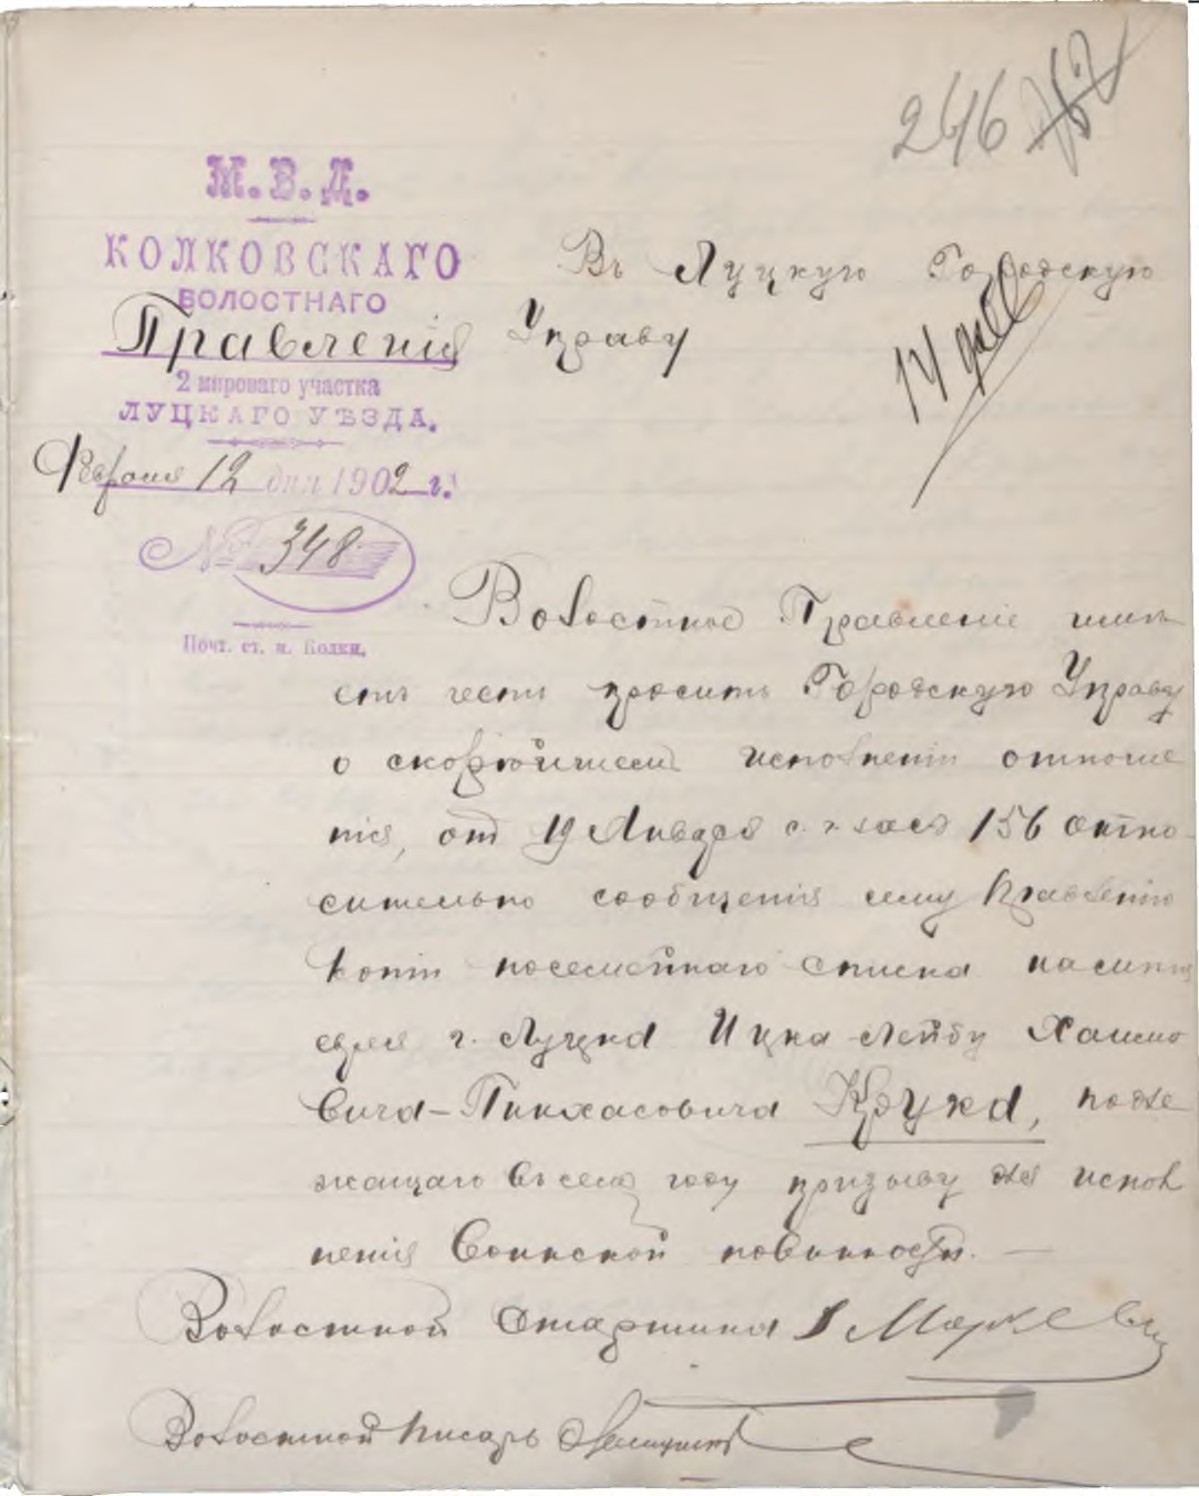 246
М.В.Д.
КОЛКОВСКАГО
ВОЛОСТНАГО
Правленія
2 мироваго участка
ЛУЦКАГО УѢЗДА.
Февраля 12 дня 1902 г.
№ 348
Почт. ст. м. Колки.
Въ Луцкую Городскую
Управу
14 фев
Волостное Правленіе имѣ
етъ честь просить Городскую Управу
о скорѣйшемъ исполненіи отноше
нія, отъ 19 Января с. г. за № 156 отно-
сительно сообщенія сему Правленію
копіи посемейнаго списка на мѣщ
г. Луцка Ицка-Лейбу Хаимо
вича-Пинхасовича Крука, подле
жащаго въ семъ году призыву для испол
ненія Воинской повинности. —
Волостной Старшина Маркевич
Волостной Писарь